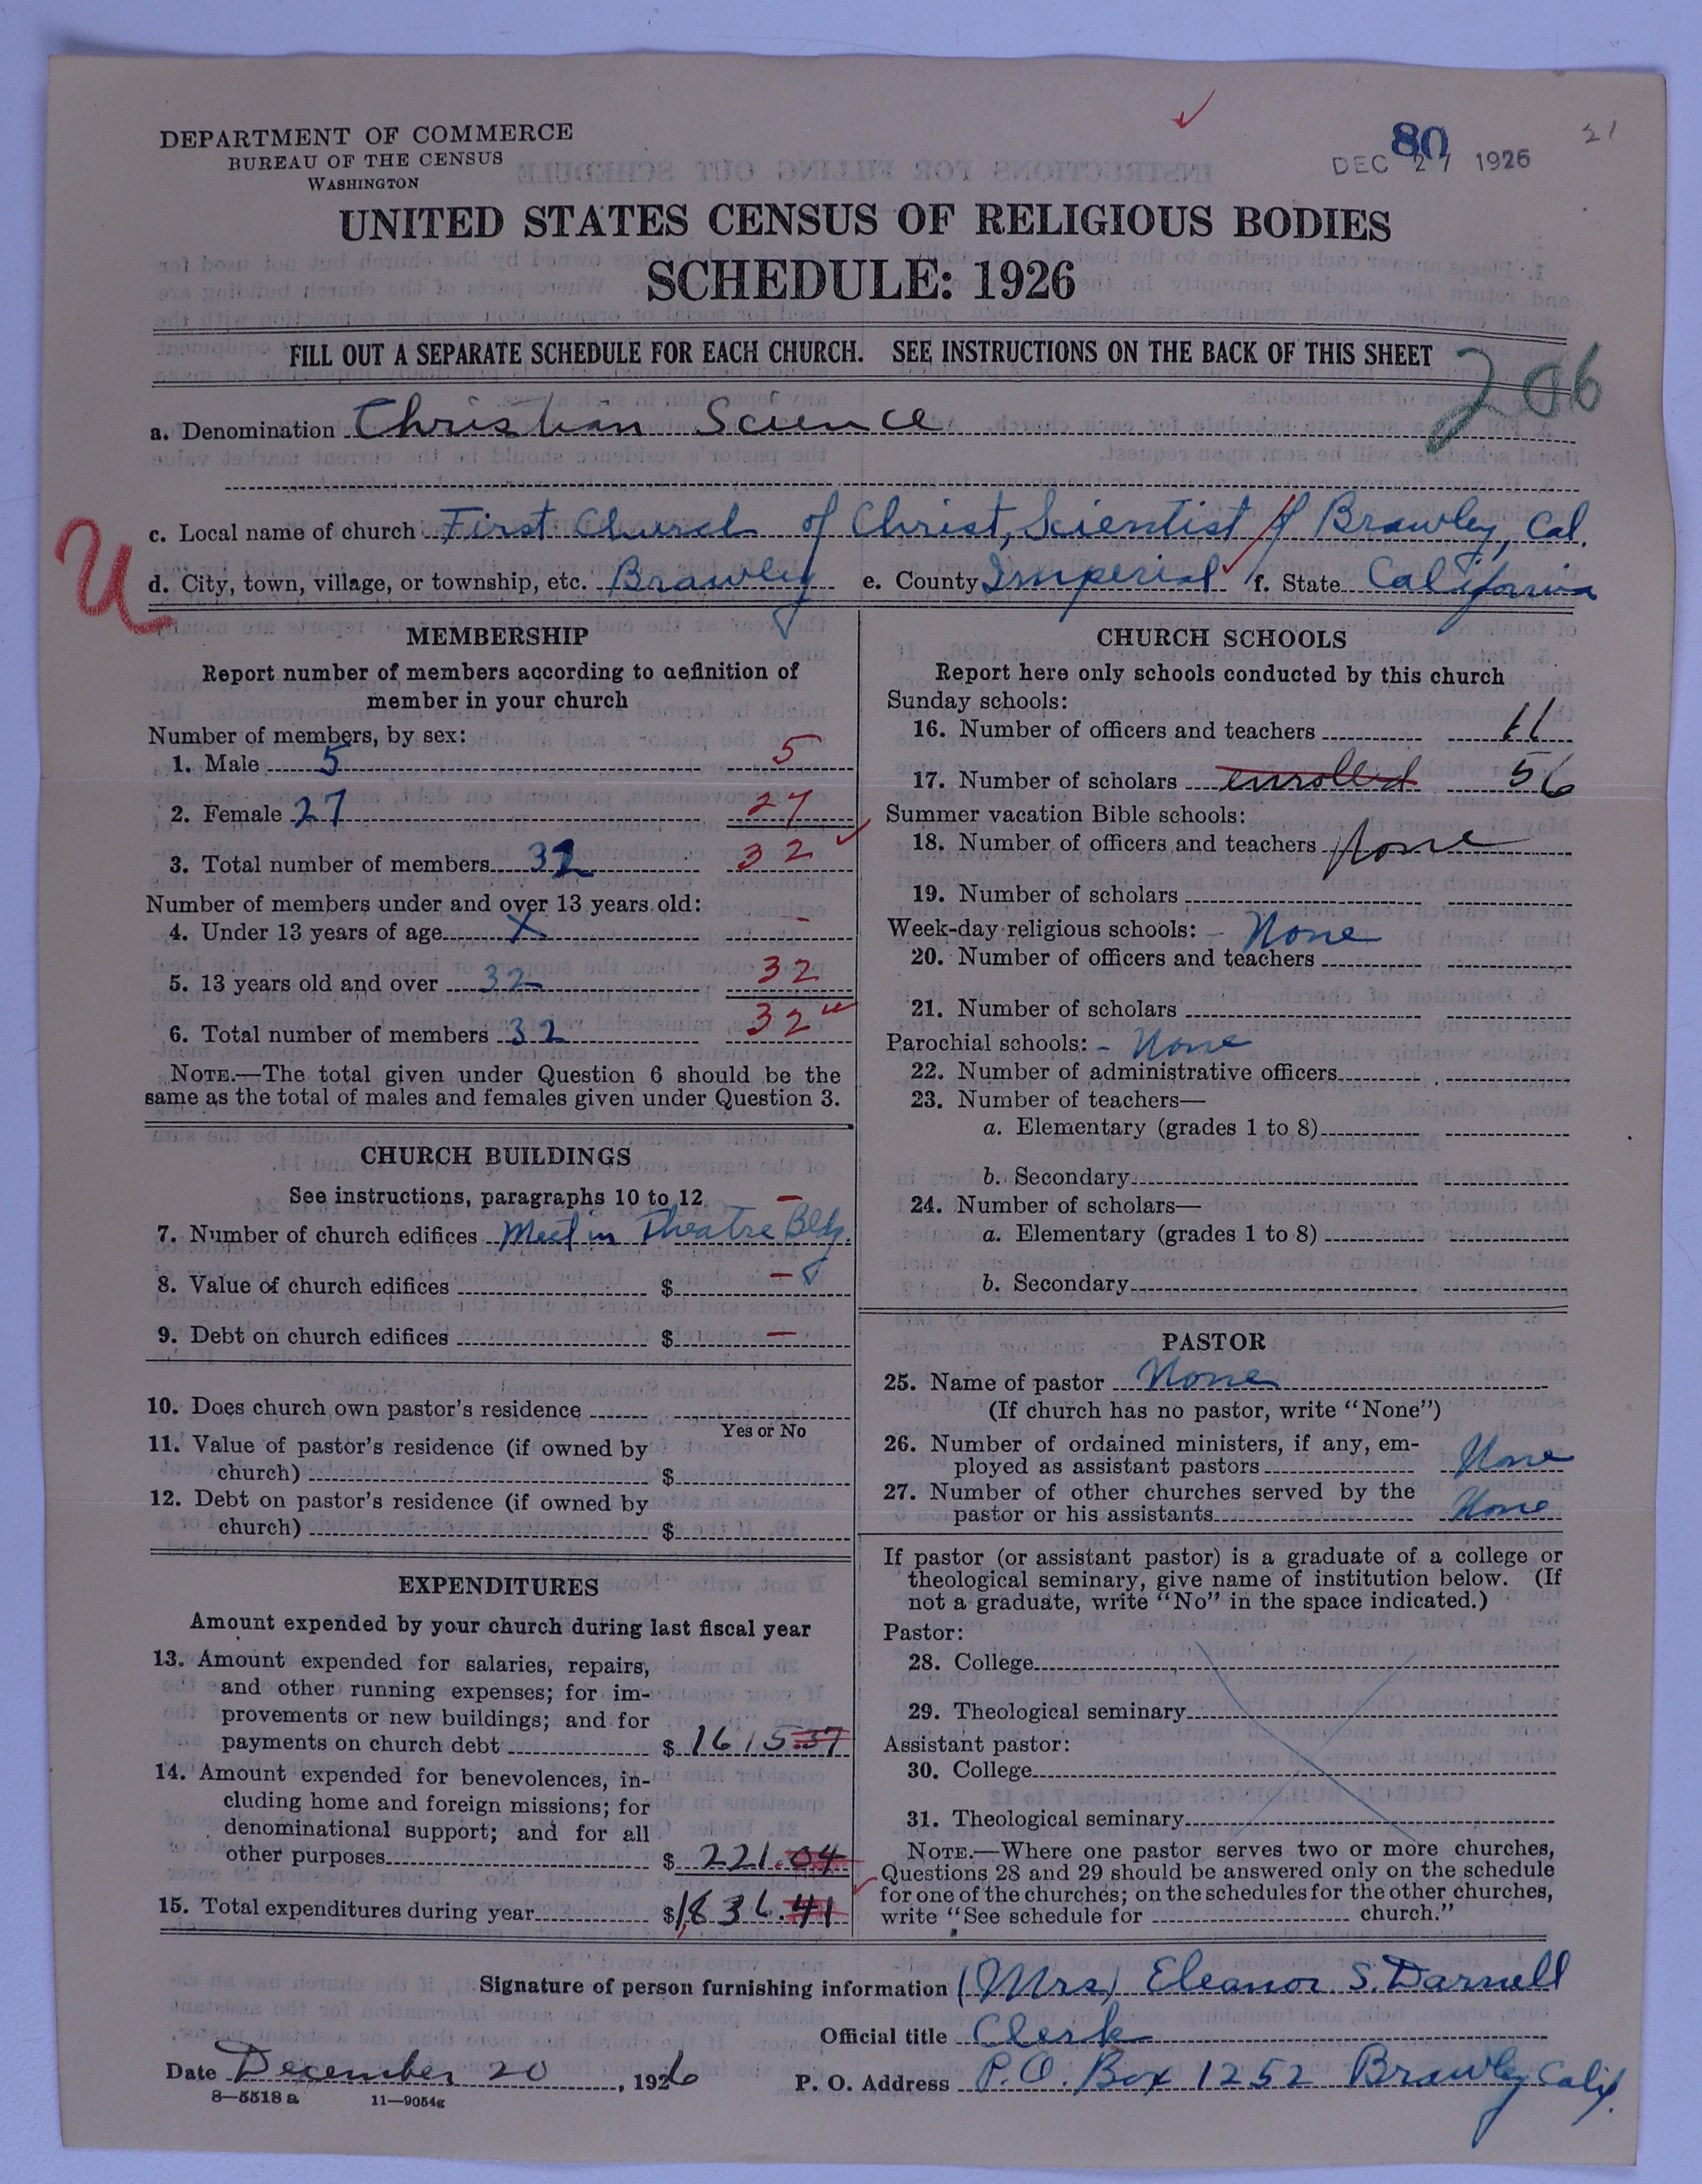 DEPARTMENT OF COMMERCE
BUREAU OF THE CENSUS
WASHINGTON
80
DEC 27 1926
21
UNITED STATES CENSUS OF RELIGIOUS BODIES
SCHEDULE: 1926
FILL OUT A SEPARATE SCHEDULE FOR EACH CHURCH. SEE INSTRUCTIONS ON THE BACK OF THIS SHEET
206
a. Denomination Christian Science
c. Local name of church First Church of Christ, Scientist of Brawley, Cal.
U
d. City, town, village, or township, etc. Brawley e. County Imperial f. State California
MEMBERSHIP
Report number of members according to definition of
member in your church
Number of members, by sex:
1. Male 5 5
2. Female 27 27
3. Total number of members 32 32
Number of members under and over 13 years old:
4. Under 13 years of age X -
5. 13 years old and over 32 32
6. Total number of members 32 32
NOTE.—The total given under Question 6 should be the
same as the total of males and females given under Question 3.
CHURCH BUILDINGS
See instructions, paragraphs 10 to 12 -
7. Number of church edifices Meet in Theatre Bldg.
8. Value of church edifices $ -
9. Debt on church edifices $ -
10. Does church own pastor's residence
Yes or No
11. Value of pastor's residence (if owned by
church) $
12. Debt on pastor's residence (if owned by
church) $
EXPENDITURES
Amount expended by your church during last fiscal year
13. Amount expended for salaries, repairs,
and other running expenses; for im-
provements or new buildings; and for
payments on church debt $ 1615.37
14. Amount expended for benevolences, in-
cluding home and foreign missions; for
denominational support; and for all
other purposes $ 221.04
15. Total expenditures during year $1,836.41
CHURCH SCHOOLS
Report here only schools conducted by this church
Sunday schools:
16. Number of officers and teachers 11
17. Number of scholars enrolled 56
Summer vacation Bible schools:
18. Number of officers and teachers None
19. Number of scholars
Week-day religious schools: - None
20. Number of officers and teachers
21. Number of scholars
Parochial schools: - None
22. Number of administrative officers
23. Number of teachers—
a. Elementary (grades 1 to 8)
b. Secondary
24. Number of scholars—
a. Elementary (grades 1 to 8)
b. Secondary
PASTOR
25. Name of pastor None
(If church has no pastor, write "None")
26. Number of ordained ministers, if any, em-
ployed as assistant pastors None
27. Number of other churches served by the
pastor or his assistants None
If pastor (or assistant pastor) is a graduate of a college or
theological seminary, give name of institution below. (If
not a graduate, write "No" in the space indicated.)
Pastor:
28. College
29. Theological seminary
Assistant pastor:
30. College
31. Theological seminary
NOTE.—Where one pastor serves two or more churches,
Questions 28 and 29 should be answered only on the schedule
for one of the churches; on the schedules for the other churches,
write "See schedule for church."
Signature of person furnishing information (Mrs) Eleanor S. Darnell
Official title Clerk
Date December 20, 1926 P. O. Address P.O. Box 1252 Brawley Calif.
8—5518a 11—9054g